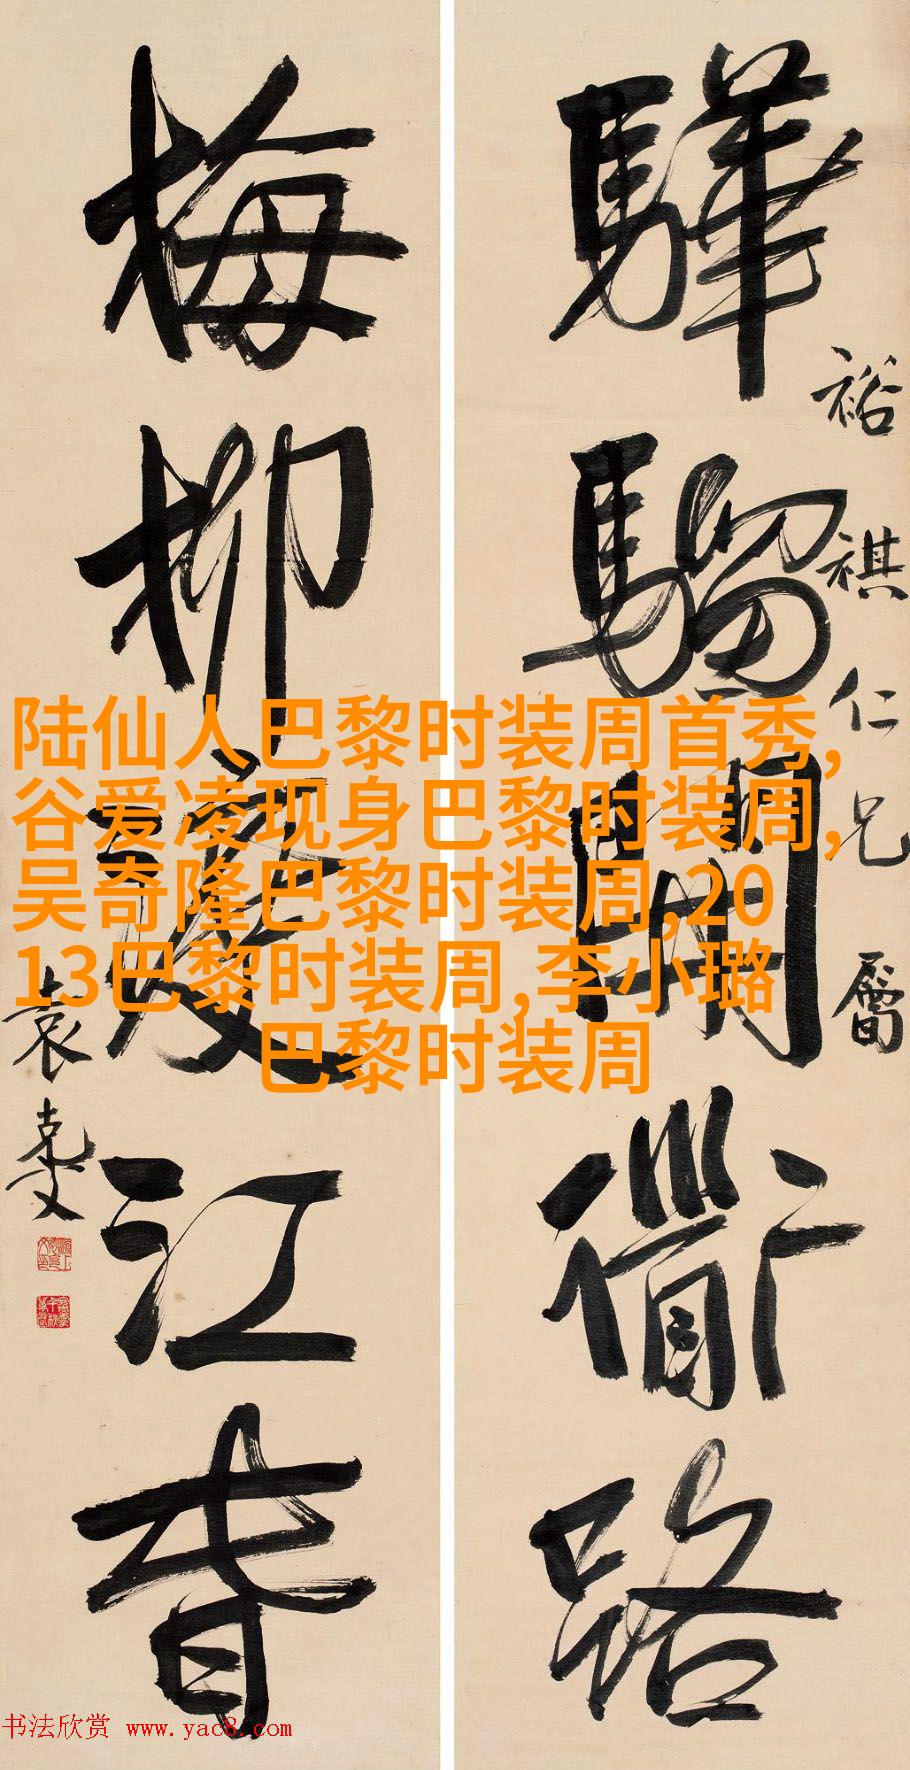 驊騮開衟路
裕祺仁兄屬
梅柳度江春
袁克文
陆仙人巴黎时装周首秀,
谷爱凌现身巴黎时装周,
吴奇隆巴黎时装周,20
13巴黎时装周,李小璐
巴黎时装周
书法欣赏 www.yac8.com